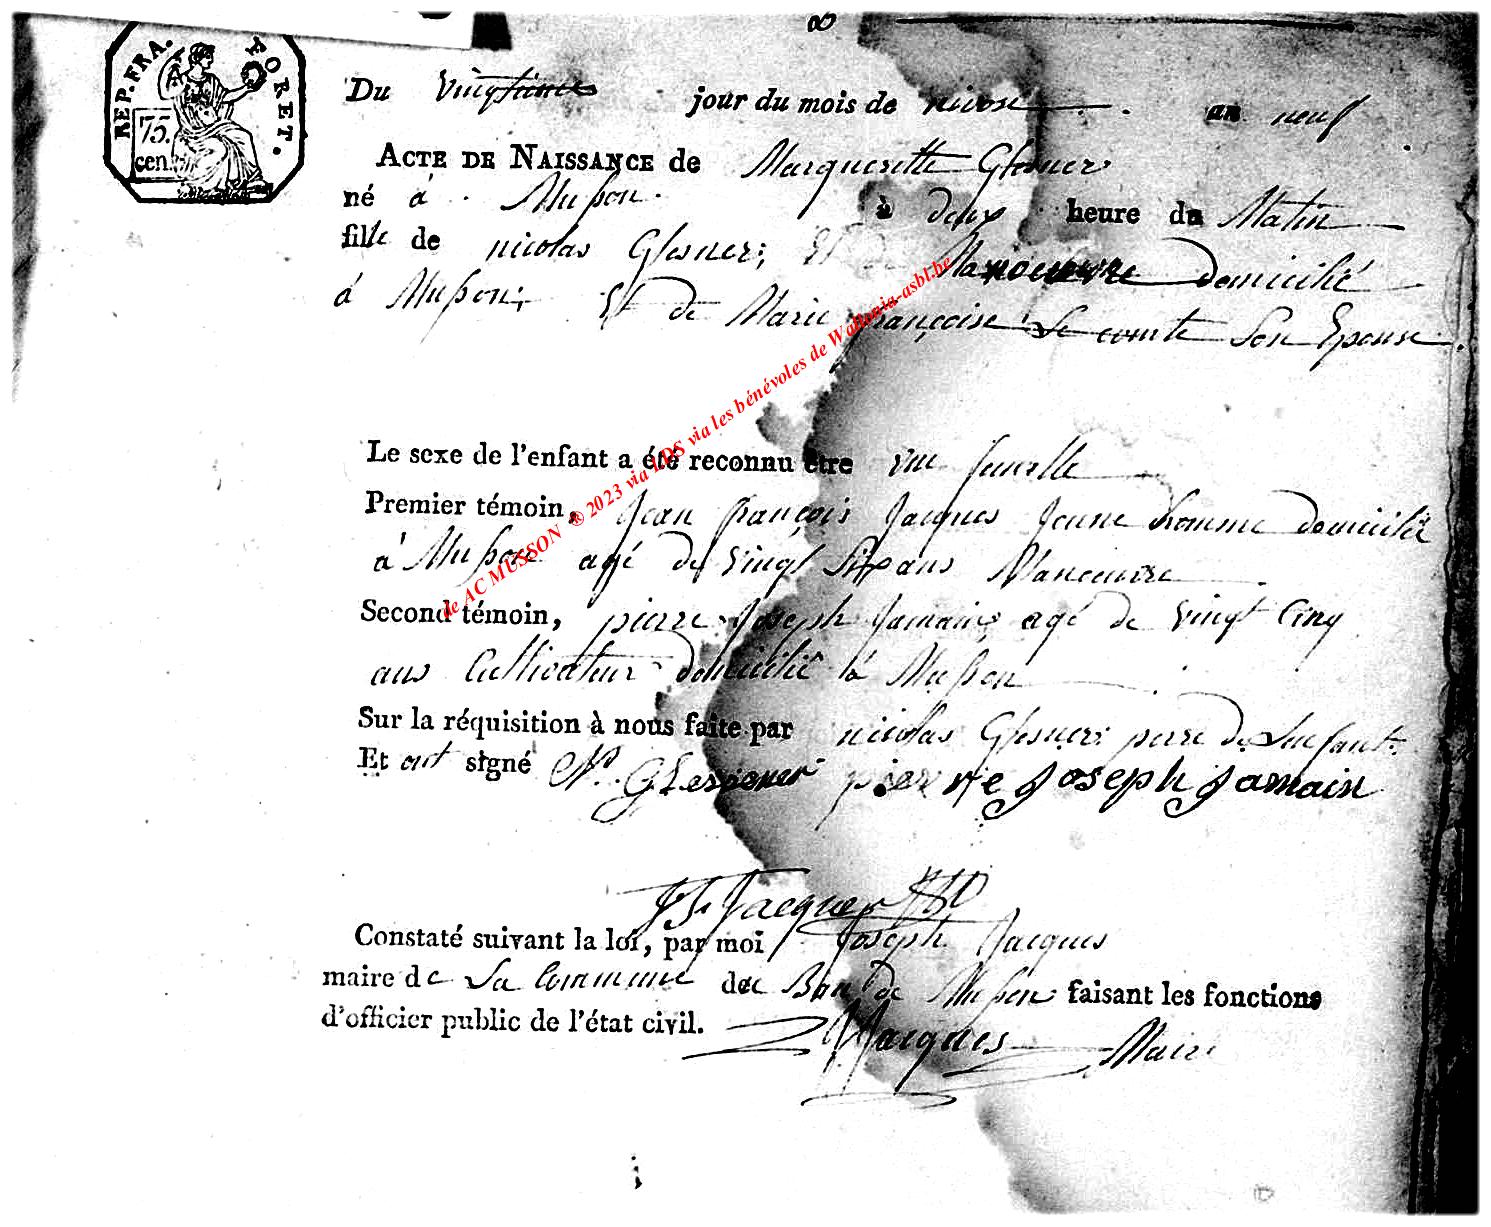 8
REP. FRA. FORET.
75.
cen.
Du Vingtieme jour du mois de nivose an neuf
ACTE DE NAISSANCE de Marguerette Glesner
né à Musson. à deux heure du Matin
fille de nicolas Glesner; Et de Manoeuvre domicilié
à Musson; Et de Marie françoise Le comte Son Epouse.
Le sexe de l'enfant a été reconnu être une femelle
Premier témoin, Jean françois Jacques Jeune homme domicilié
à Musson agé de vingt Six ans Manoeuvre
Second témoin, pierre Joseph Jamain, agé de vingt Cinq
ans Cultivateur domicilié à Musson
Sur la réquisition à nous faite par nicolas Glesner: perre de Lenfant.
Et ont signé N. Glessener pierre Joseph Jamain
J f Jacques
Constaté suivant la loi, par moi Joseph Jacques
maire de La Commune du Ban de Musson faisant les fonctions
d'officier public de l'état civil. J Jacques Maire
de AC MUSSON ® 2023 via LDS via les bénévoles de Wallonia-asbl.be